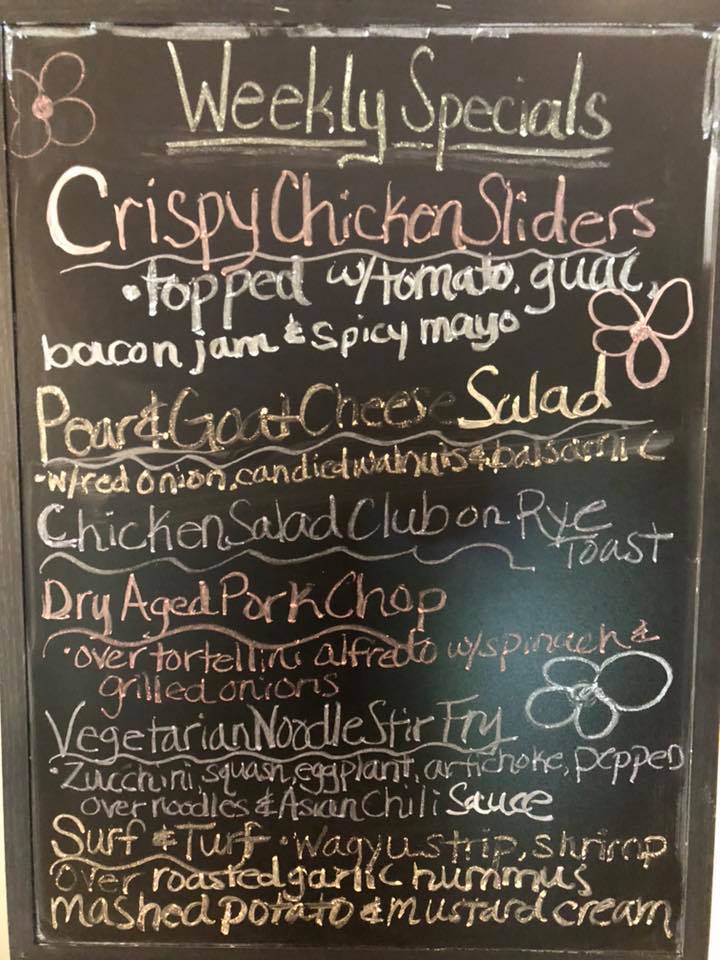 Weekly Specials
Crispy Chicken Sliders
•topped w/tomato, guac,
bacon jam & spicy mayo
Pear & Goat Cheese Salad
•w/red onion, candied walnuts & balsamic
Chicken Salad Club on Rye
Toast
Dry Aged Pork Chop
•over tortellini alfredo w/spinach &
grilled onions
Vegetarian Noodle Stir Fry
•Zucchini, squash, eggplant, artichoke, pepper
over noodles & Asian Chili Sauce
Surf & Turf •Wagyu strip, shrimp
over roasted garlic hummus
mashed potato & mustard cream